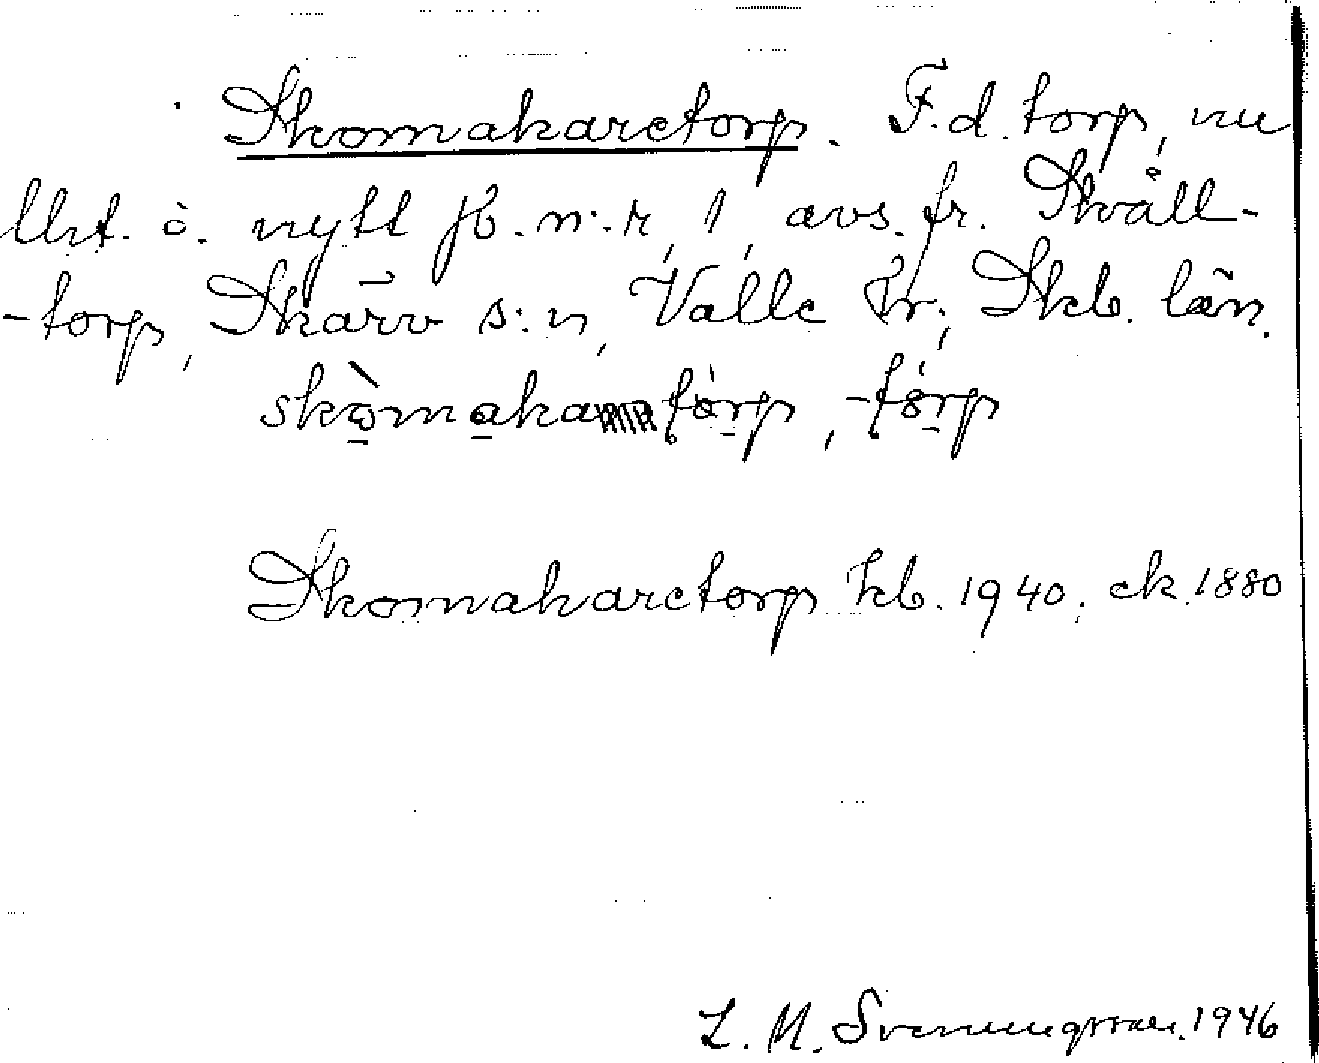 Skomakaretorp. F.d. torp, nu
lht. o. nytt jb. n:r, 1, avs. fr. Skväll-
-torp, Skärv s:n, Valle hr; Skb. län.
skòmakatòrp, -tórp
Skomakaretorp kb. 1940. ek. 1880
L. M. Svenungsson. 1946